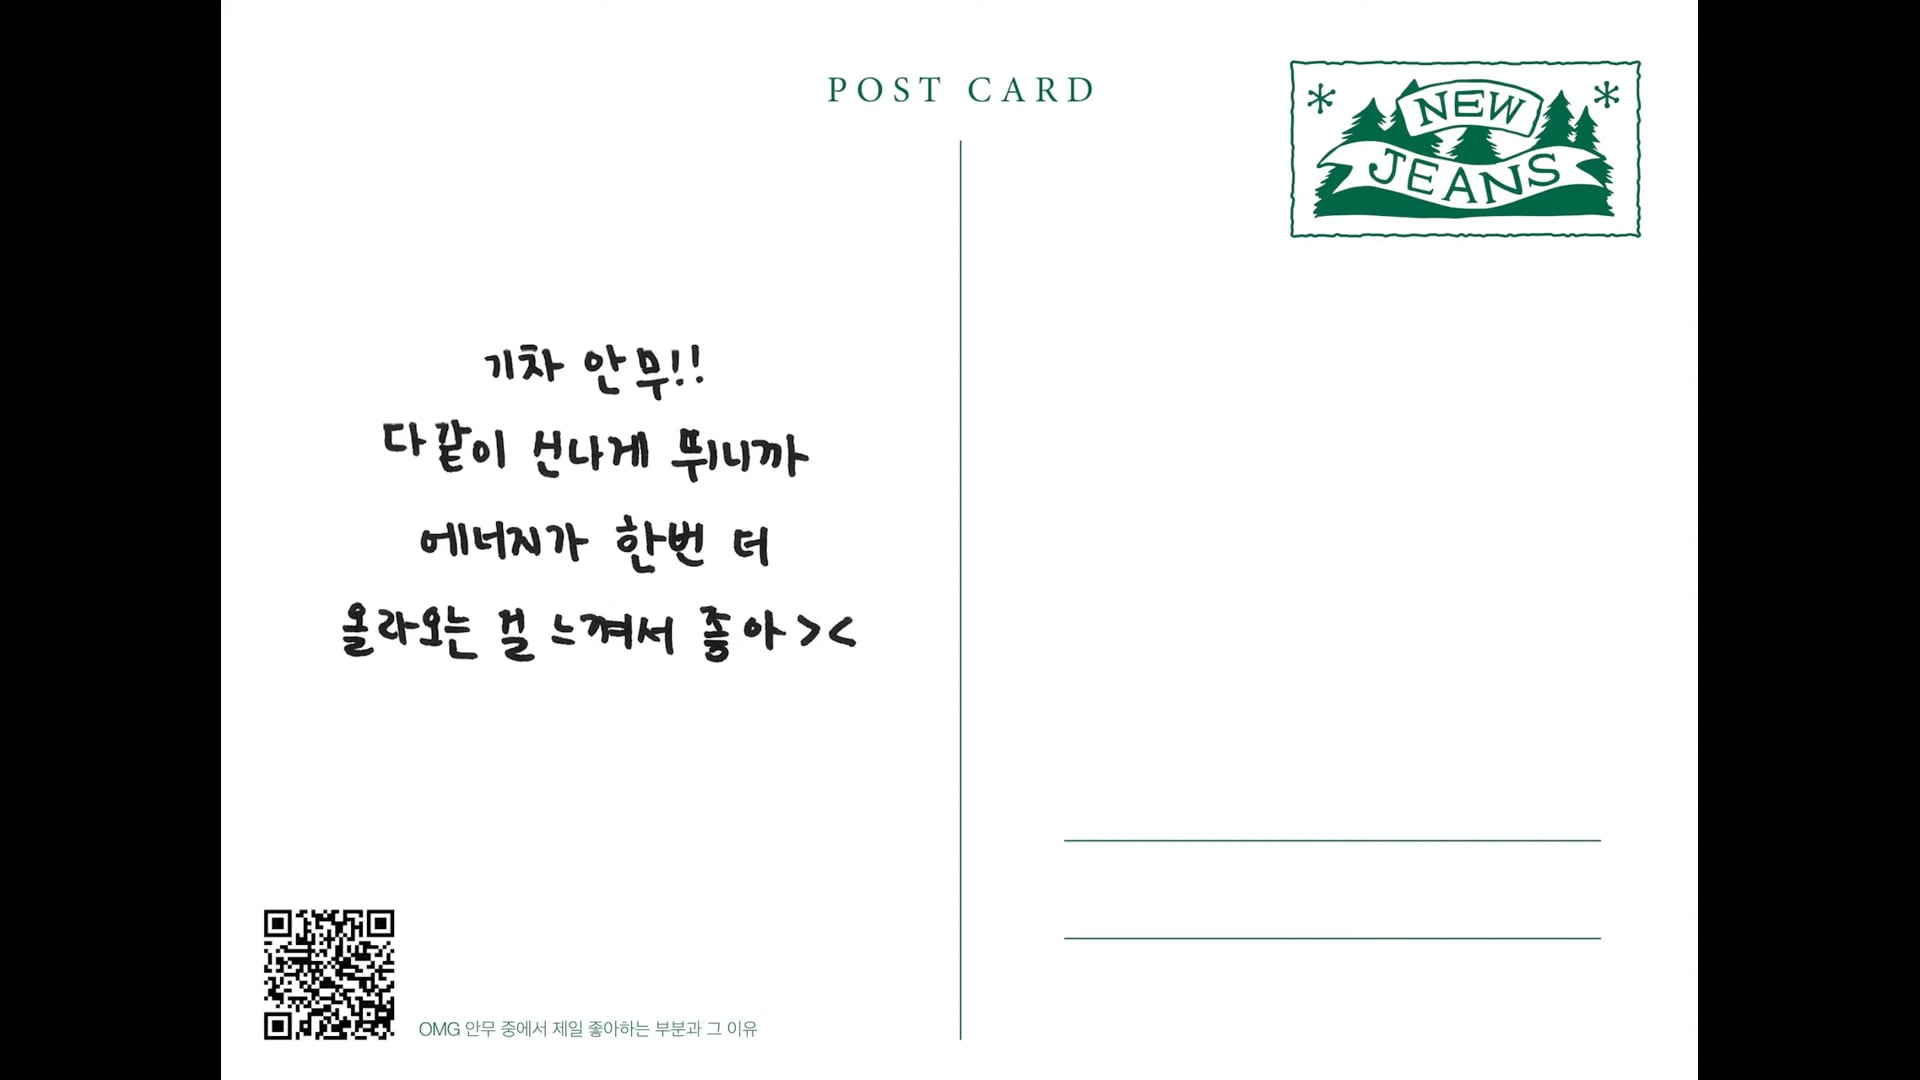 POST CARD
NEW
JEANS
기차 안무!!
다같이 신나게 뛰니까
에너지가 한번 더
올라오는 걸 느껴서 좋아><
OMG 안무 중에서 제일 좋아하는 부분과 그 이유